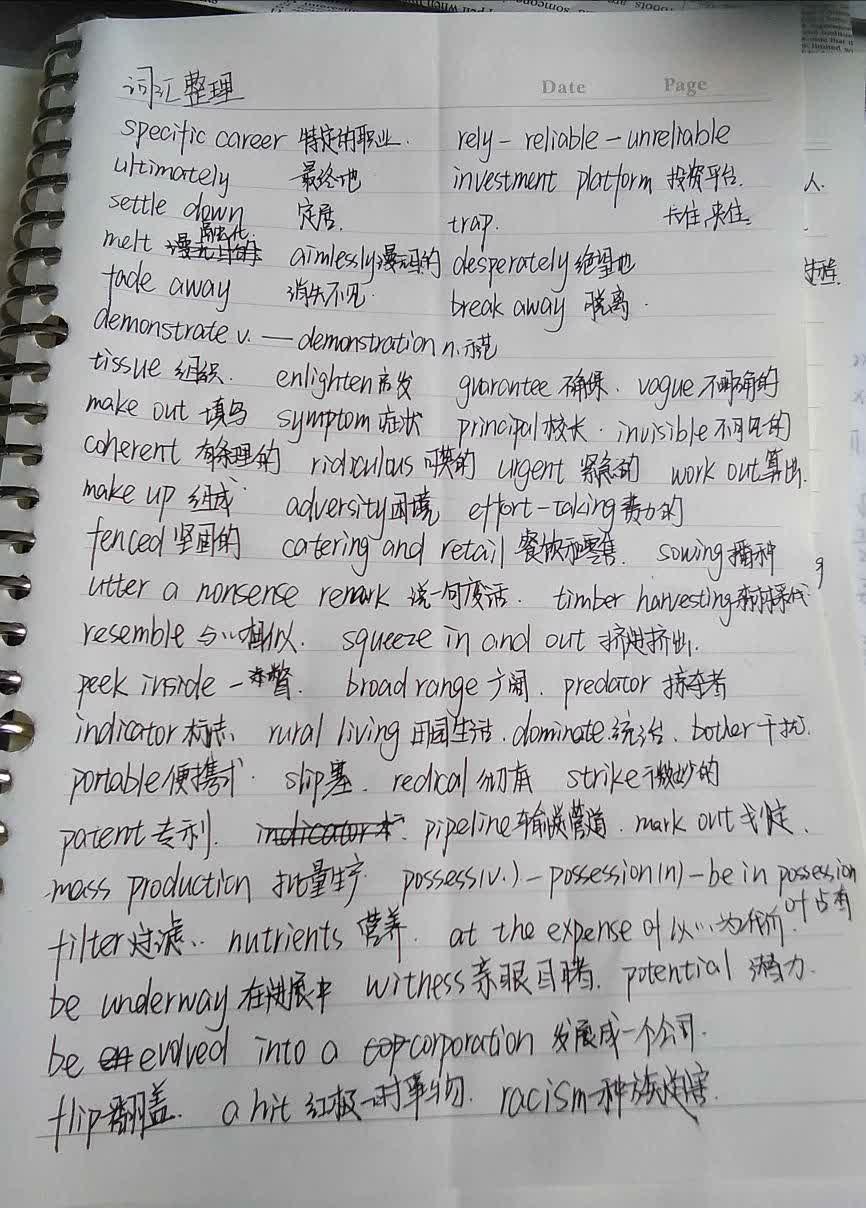 词汇整理 Date Page
specific career 特定的职业. rely - reliable - unreliable
ultimately 最终地 investment platform 投资平台.
settle down 定居. trap. 卡住,夹住.
melt 融化. aimlessly 漫无目的 desperately 绝望地
fade away 消失不见. break away 脱离.
demonstrate v. — demonstration n.示范
tissue 组织. enlighten 启发 guarantee 确保. vague 不明确的
make out 填写 symptom 症状 principal 校长. invisible 不可见的
coherent 有条理的 ridiculous 可笑的 urgent 紧急的 work out 算出.
make up 组成. adversity 困境 effort-taking 费力的
fenced 坚固的 catering and retail 餐饮和零售. sowing 播种
utter a nonsense remark 说一句废话. timber harvesting 森林采伐
resemble 与…相似. squeeze in and out 挤进挤出.
peek inside 一瞥. broad range 广阔. predator 掠夺者
indicator 标志. rural living 田园生活. dominate 统治. bother 干扰.
portable 便携式. slip 塞. redical 彻底 strike 微妙的
patent 专利. pipeline 输送管道. mark out 划定.
mass production 批量生产. possess(v.) - possession(n) - be in possession of 占有
filter 过滤.. nutrients 营养. at the expense of 以…为代价.
be underway 在进展中 witness 亲眼目睹. potential 潜力.
be evolved into a corporation 发展成一个公司.
flip 翻盖. a hit 红极一时事物. racism 种族迫害.